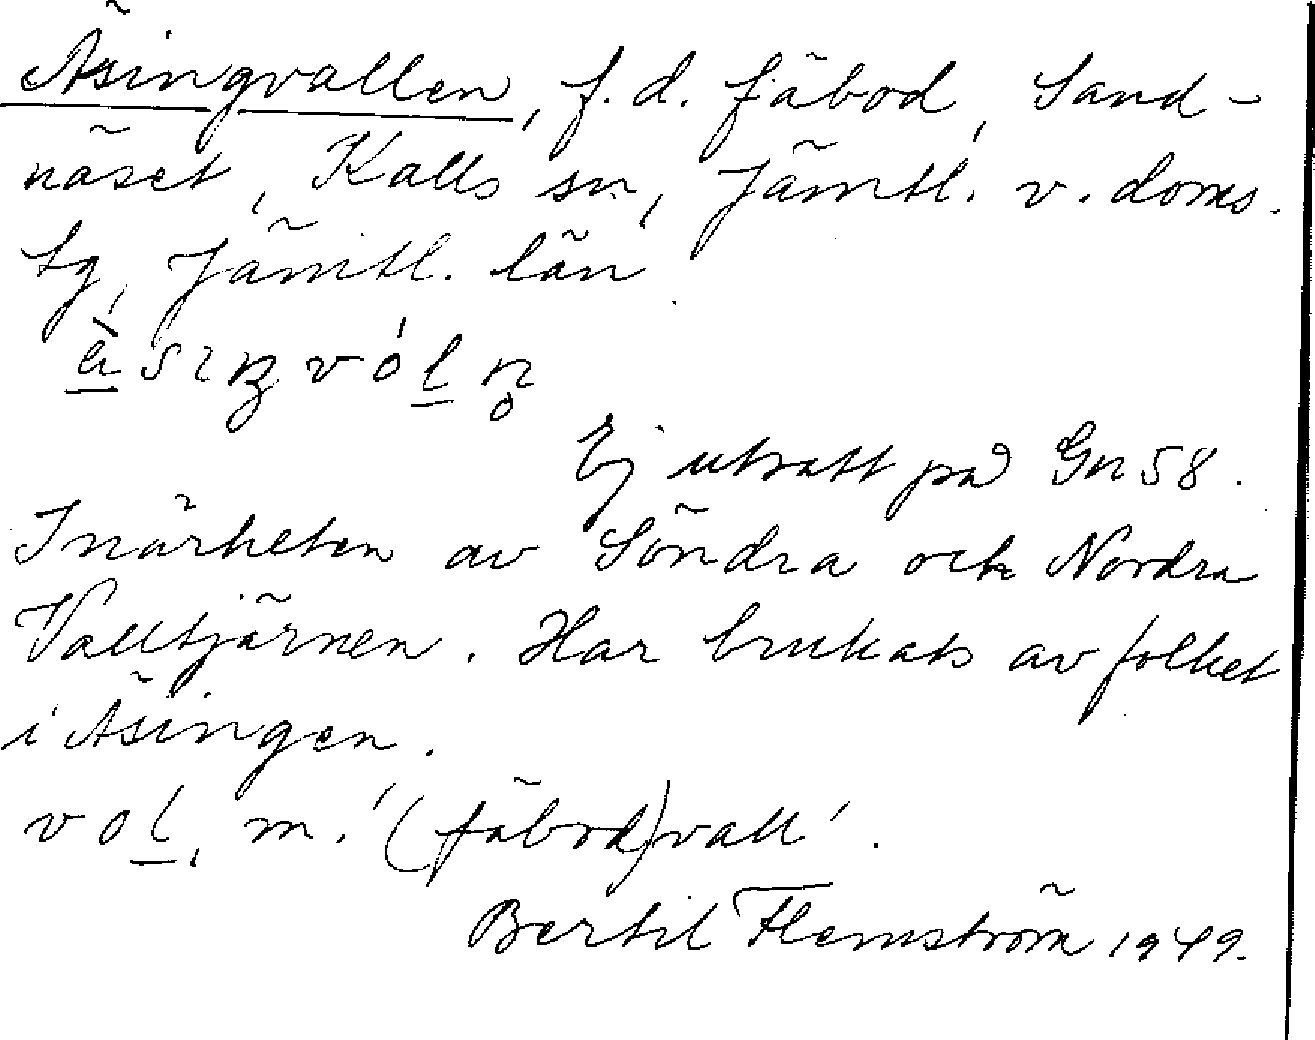 Äsingvallen, f.d. fäbod, Sand-
näset, Kalls sn, Jämtl. v. doms.
tg, Jämtl. län
ä̀sıŋvóln̥
Ej utsatt på Gn 58.
I närheten av Söndra och Nordra
Valltjärnen. Har brukats av folket
i Äsingen.
vol, m. '(fäbod)vall'.
Bertil Flemström 1949.